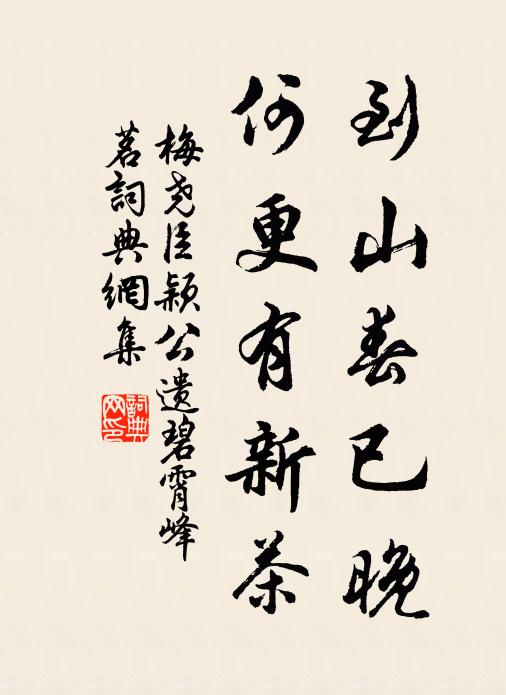 到山春已晚
何更有新茶
梅尧臣颖公遗碧霄峰
茗詞典網集
詞典
网印